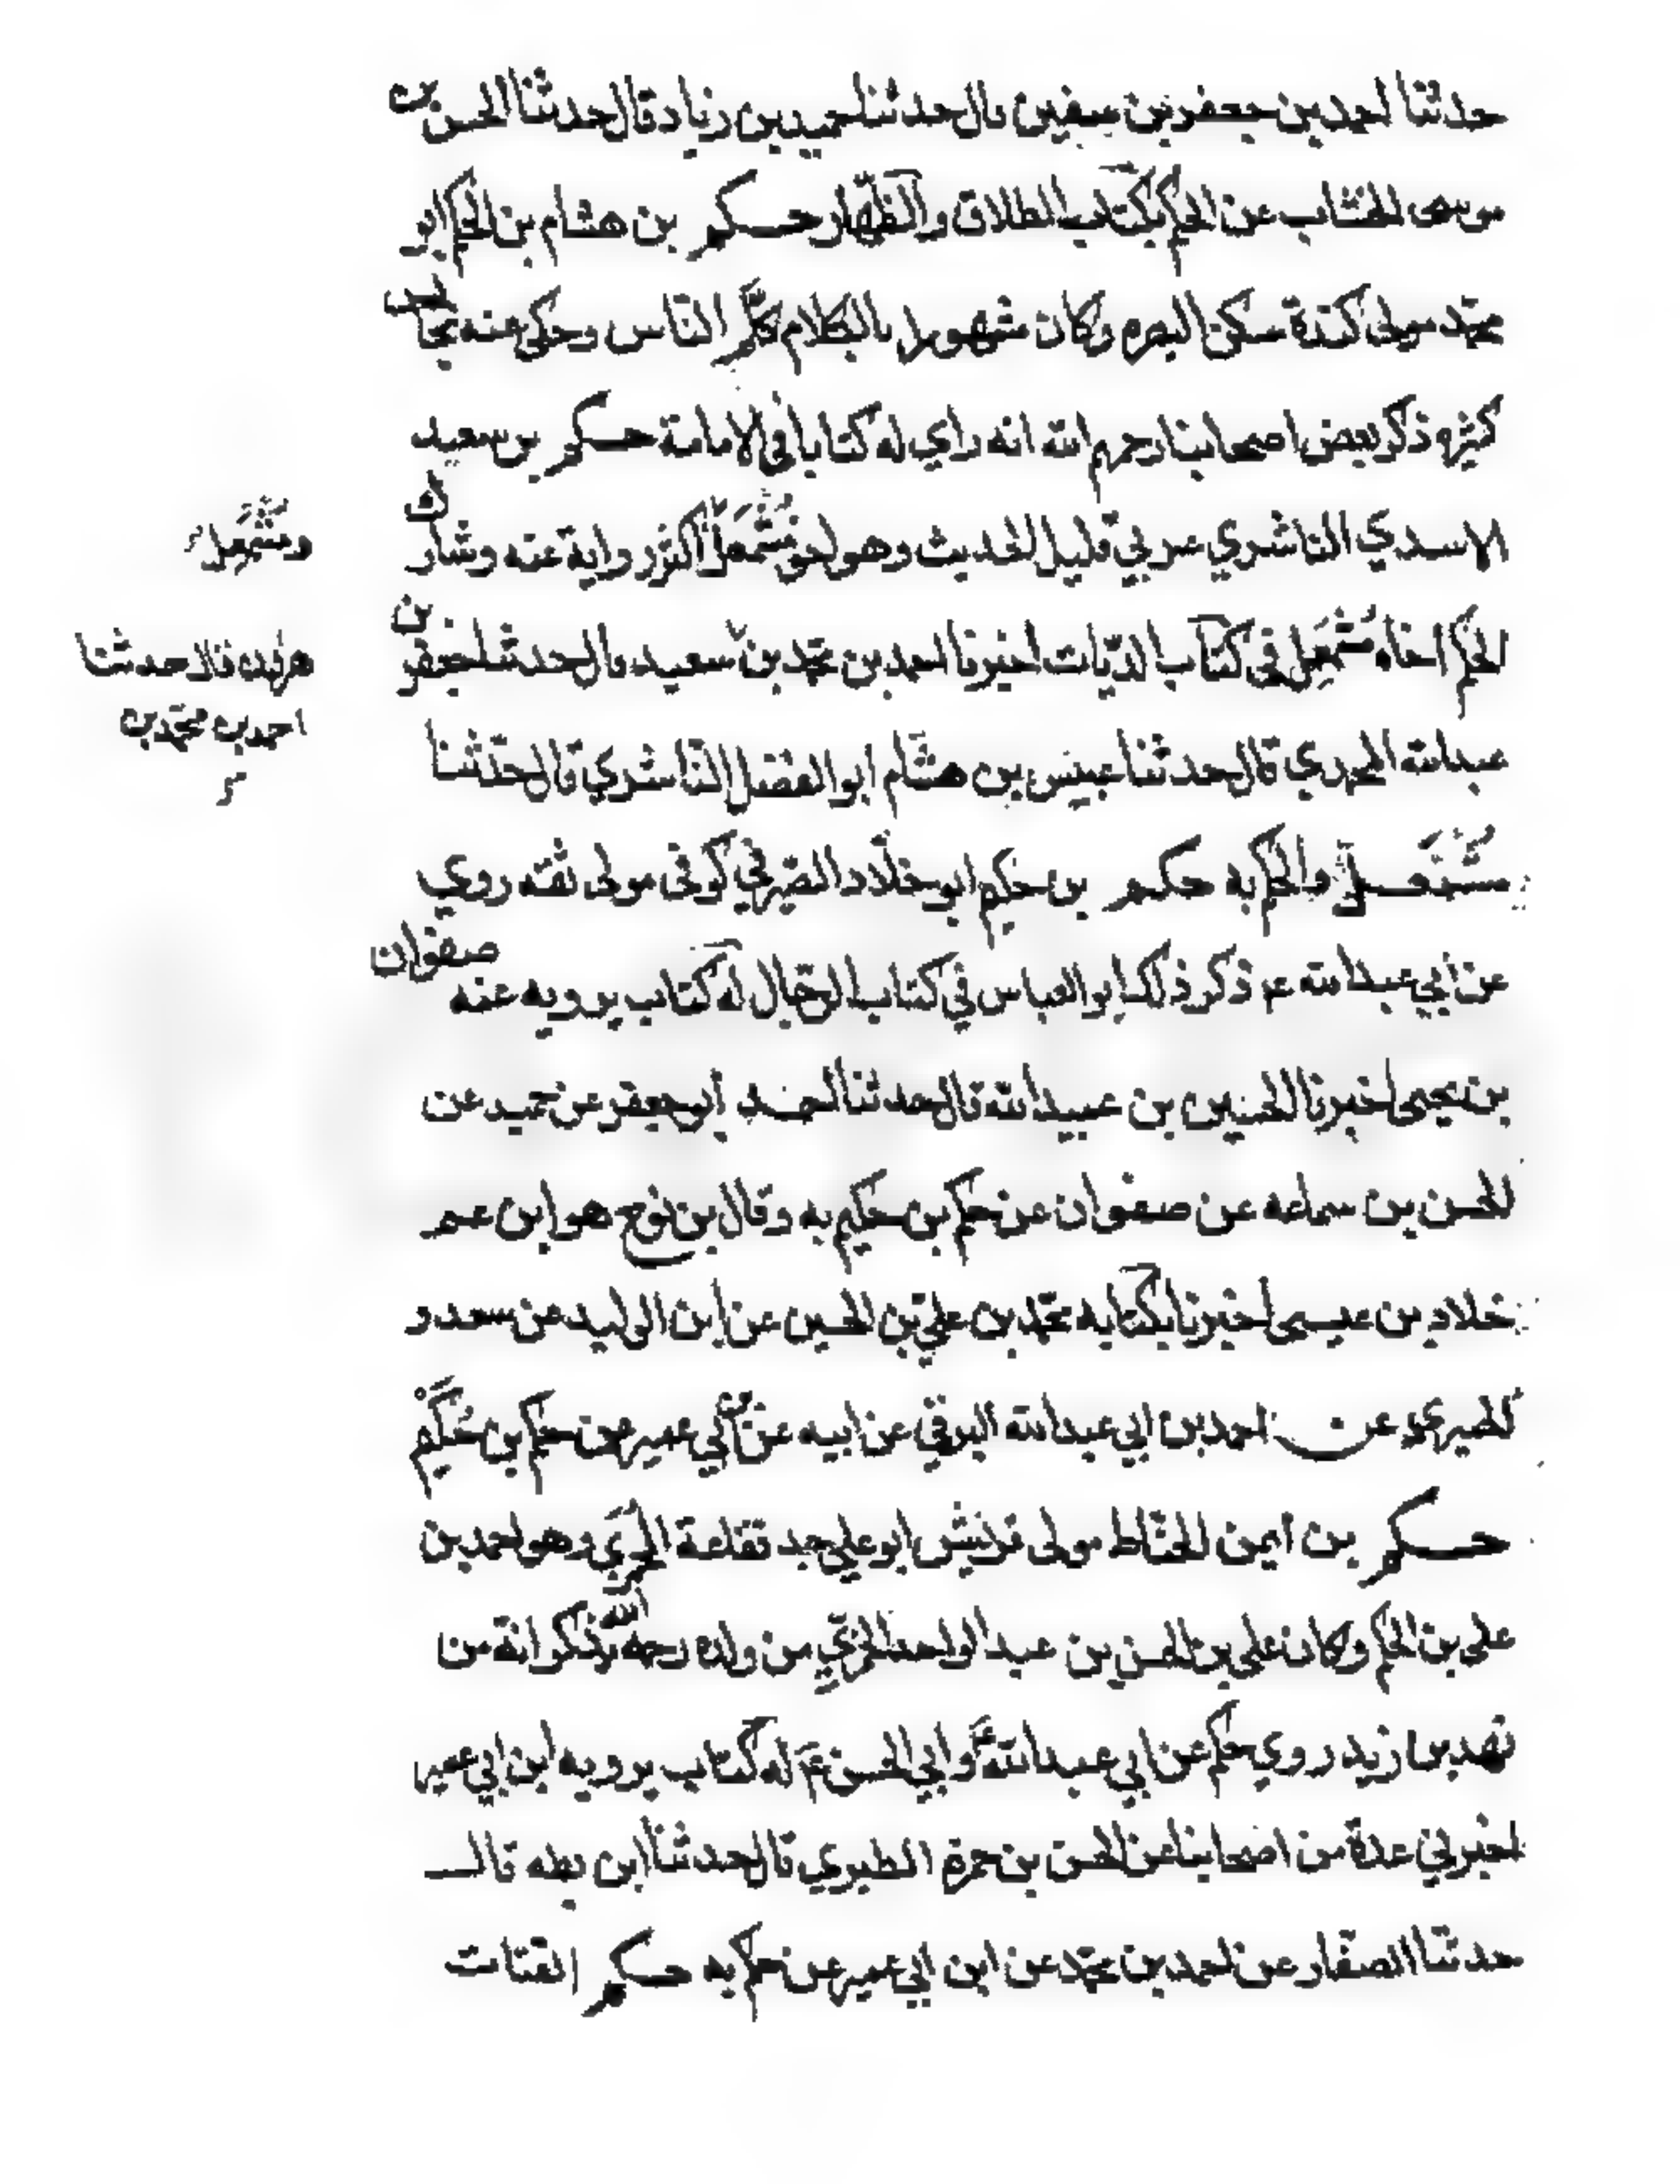 حدثنا احمد بن جعفر بن سفين قال حدثنا حميد بن زياد قال حدثنا الحسن بن
موسى الخشاب عن الحكم بكتاب الطلاق والظهار حكم بن هشام بن الحكم ابو
محمد مولى كندة سكن البصره وكان مشهورا بالكلام كلّم الناس وحكى عنه مجالس
كثيره ذكر بعض اصحابنا رحمهم الله انه راي له كتابا في الامامة حكم بن سعيد
الاسدي الناشري عربي قليل الحديث وهو اخو مُشْمَعِلّ اكثر رواية عنه وشارك
الحكم اخاه مُشْمَعِل في كتاب الديّات اخبرنا احمد بن محمد بن سعيد قال حدثنا جعفر بن
عبدالله المحمدي قال حدثنا عبيس بن هشام ابو الفضل الناشري قال حدّثنا
مُشْمَعِلّ والحكم به حكم بن حكيم ابو خلّاد الصيرفي كوفى مولى ثقه روي
عن ابي عبدالله عم ذكر ذلك ابو العباس في كتاب الرجال له كتاب يرويه عنه صفوان
بن يحيى اخبرنا الحسين بن عبيدالله قال حدثنا احمد بن جعفر عن حميد عن
الحسن بن سماعه عن صفوان عن حكم بن حكيم به وقال بن نوح هو ابن عم
خلاد بن عيسى اخبرنا بكتابه محمد بن علي بن الحسين عن ابن الوليد عن سعد و
الحميري عن احمد بن ابي عبدالله البرقي عن ابيه عن ابن ابي عمير عن حكم بن حُكَيْم
حكم بن ايمن الحنّاط مولى قريش ابو علي جد فقاعة الخمري وهو احمد بن
على بن الحكم وكان على بن الحسن بن عبد الواحد الخمري من ولده رحمه الله يذكر انه من
نهد بن زيد روي حكم عن ابي عبدالله عم وابي الحسن عم له كتاب يرويه ابن ابي عمير
اخبرني عدة من اصحابنا عن الحسن بن حمزة الطبري قال حدثنا ابن بطه قال
حدثنا الصفار عن احمد بن محمد عن ابن ابي عمير عن حكم به حكم القتات
ومُشْمَعِل
قالا حدثنا
احمد بن محمد بن